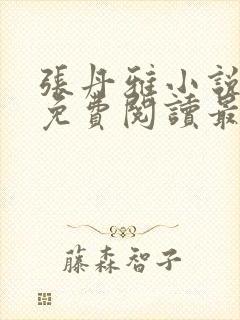 張丹雅小說
免費閱讀最
藤森智子